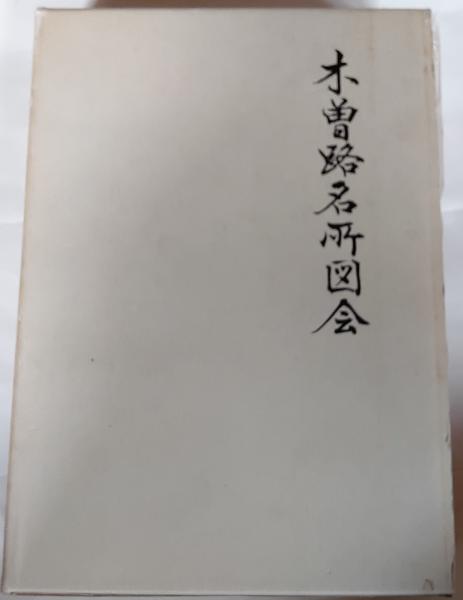 木曽路名所図会